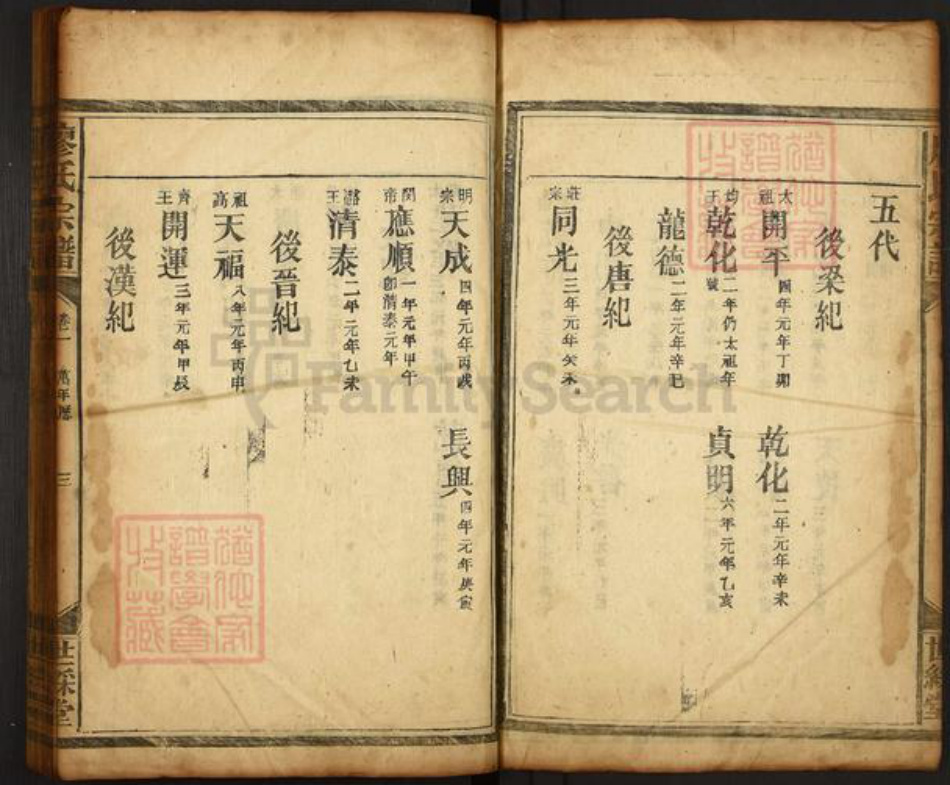 五代
後梁紀
太祖 開平 四年元年丁卯 乾化 二年元年辛未
均王 乾化 二年仍太祖年號 貞明 六年元年乙亥
龍德 二年元年辛巳
後唐紀
莊宗 同光 三年元年癸未
明宗 天成 四年元年丙戌 長興 四年元年庚寅
閔帝 應順 一年元年甲午即清泰元年
潞王 清泰 二年元年乙未
後晉紀
高祖 天福 八年元年丙申
齊王 開運 三年元年甲辰
後漢紀
廖氏宗譜 卷一 萬年曆 三 世綵堂
FamilySearch